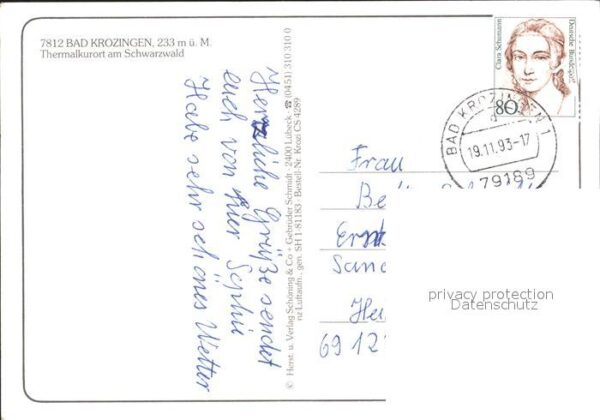 7812 BAD KROZINGEN, 233 m ü. M.
Thermalkurort am Schwarzwald
Herzliche Grüße sendet
euch von hier Sophie
Habe sehr schönes Wetter
© Herst. u. Verlag Schöning & Co + Gebrüder Schmidt · 2400 Lübeck · ☎ (0451) 310 310 0
nz Luftaufn., gen. SH 1-81183 · Bestell-Nr. Krozi CS 4289
Clara Schumann
Deutsche Bundespost
80
BAD KROZINGEN 1
d
19.11.93-17
79189
Frau
Be
Ernt
Sand
He
69 12
privacy protection
Datenschutz